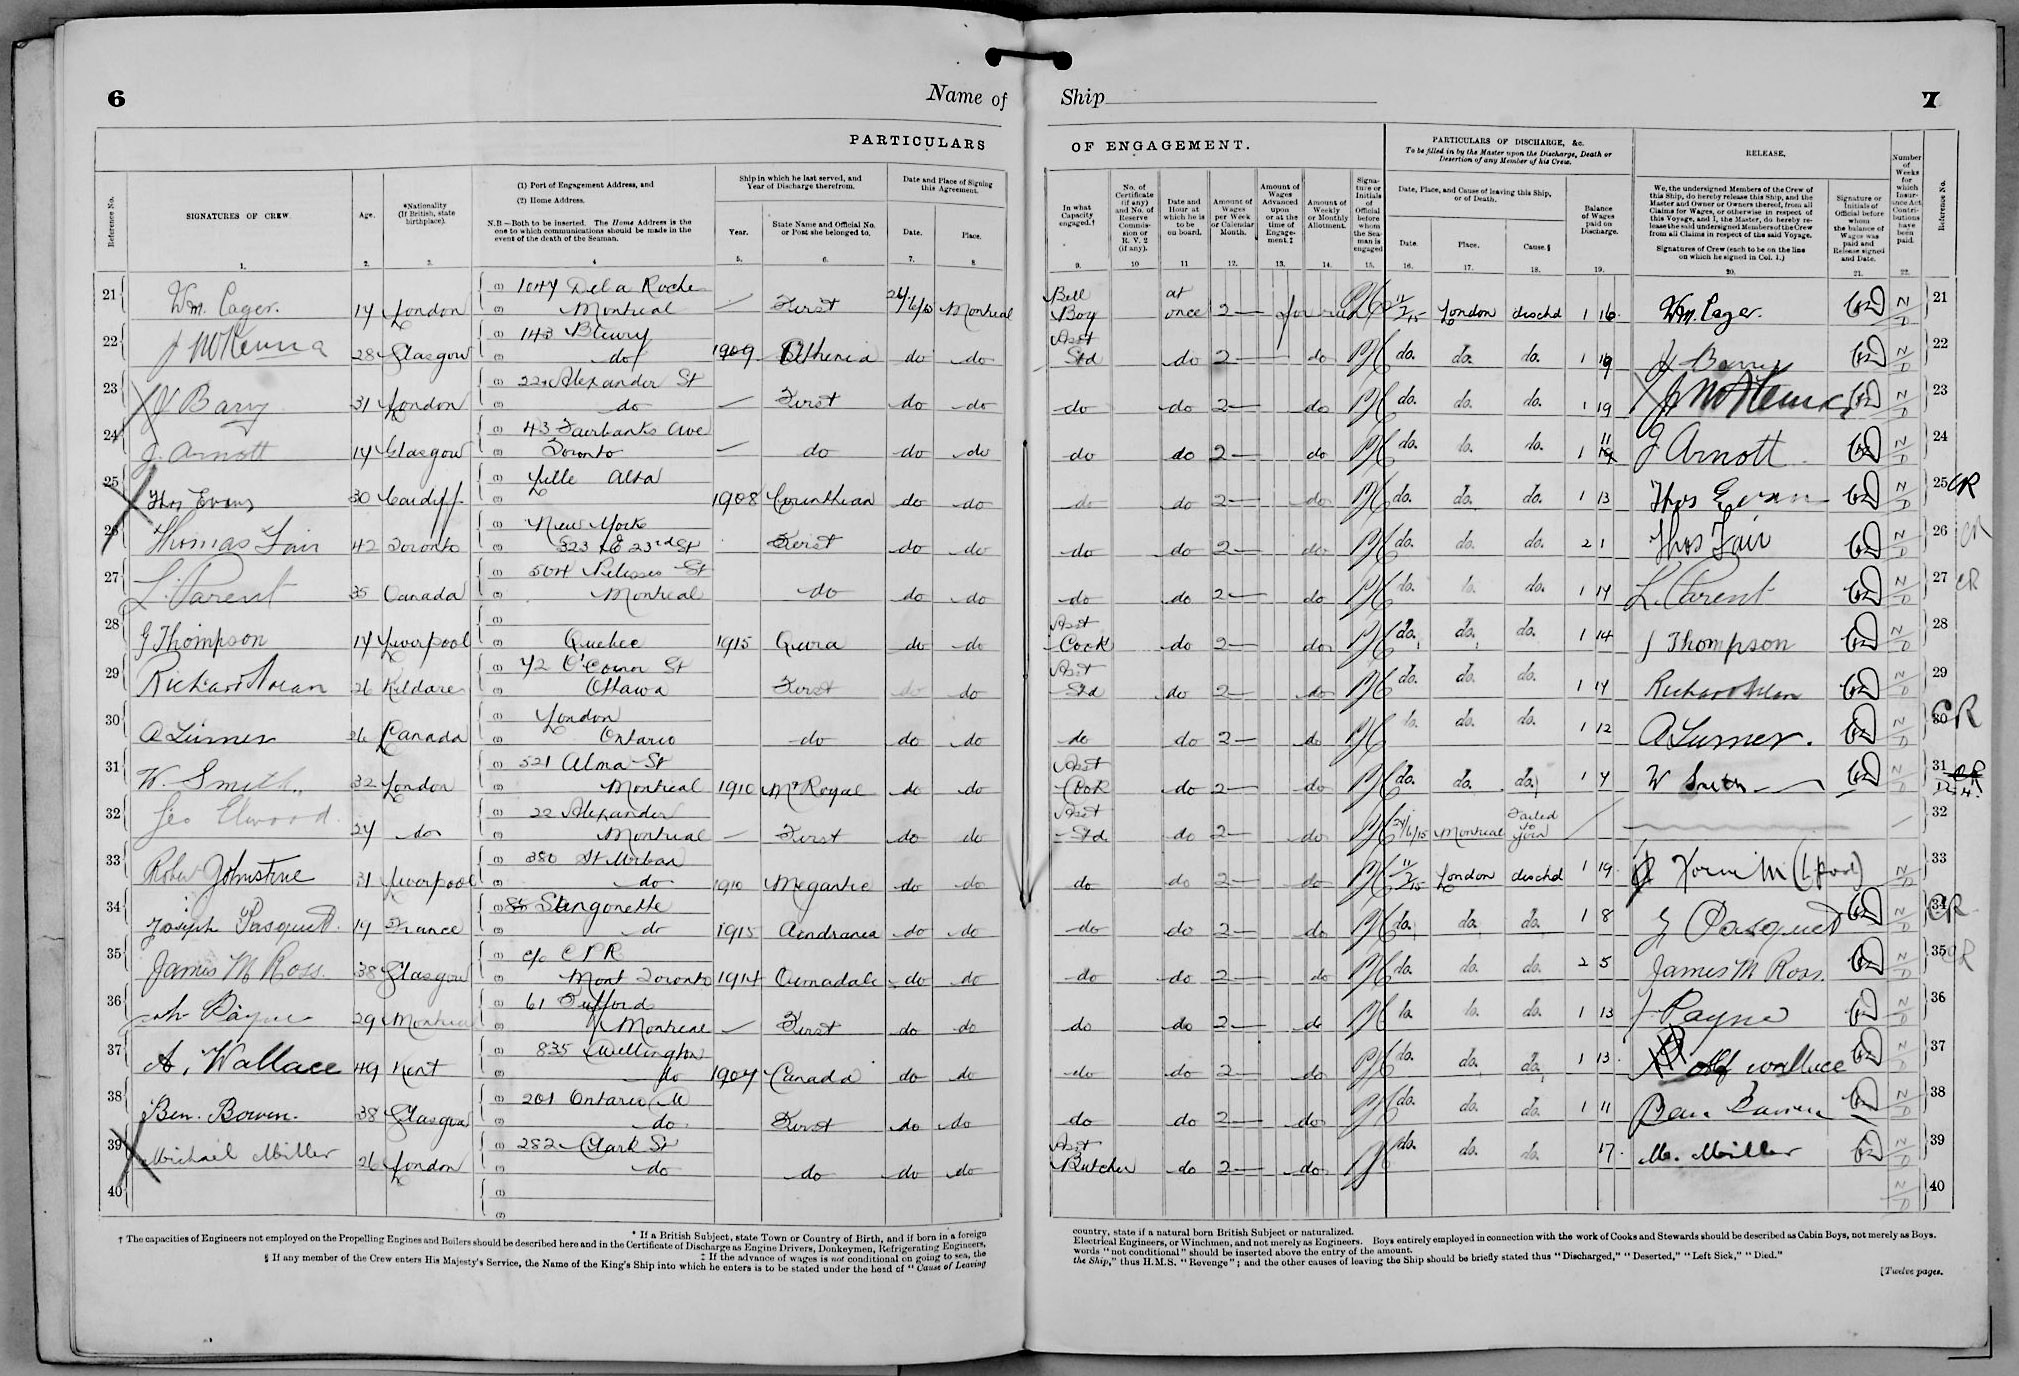 6
Name of
PARTICULARS
Reference No.
SIGNATURES OF CREW.
Age.
*Nationality (If British, state birthplace).
(1) Port of Engagement Address, and
(2) Home Address.
N.B—Both to be inserted. The Home Address is the one to which communications should be made in the event of the death of the Seaman.
Ship in which he last served, and Year of Discharge therefrom.
Year.
State Name and Official No. or Port she belonged to.
Date and Place of Signing this Agreement.
Date.
Place.
1. 2. 3. 4 5. 6. 7. 8.
21 Wm. Cager. 14 London 1047 Dela Roche Montreal — First Montreal
22 J McKenna 28 Glasgow 143 Bleury do 1909 Athenia do do
23 J Barry 31 London Alexander St do — First do do
24 J. Arnott 14 Glasgow 43 Fairbanks Ave Toronto — do do do
25 Thos Evans 30 Cardiff Lille Alta 1908 Corinthian do do
26 Thomas Fair 42 Toronto New York 323 E 23rd St First do do
27 L. Parent 35 Canada 504 St Montreal do do do
28 J Thompson 14 Liverpool Quebec 1915 do do
29 Richard 26 Kildare 42 O'Connor St Ottawa First do do
30 A Turner 26 Canada London Ontario do do do
31 W. Smith 32 London 521 Alma St Montreal 1910 Mt Royal do do
32 Geo Elwood 24 do 22 Alexander Montreal — First do do
33 Robert Johnstone 31 Liverpool 380 St Urban do 1910 Megantic do do
34 Joseph Pasquet 19 France do 1915 do do
35 James M Ross. 38 Glasgow c/o C P R Mont Toronto 1914 do do
36 Payne 29 Montreal 61 Montreal — First do do
37 A. Wallace 49 Kent 835 Wellington do 1907 Canada do do
38 Ben. Bowen. 38 Glasgow 201 Ontario W do First do do
39 Michael Miller 26 London 282 Clark St do do do do
40
† The capacities of Engineers not employed on the Propelling Engines and Boilers should be described here and in the Certificate of Discharge as Engine Drivers, Donkeymen, Refrigerating Engineers,
* If a British Subject, state Town or Country of Birth, and if born in a foreign
‡ If the advance of wages is not conditional on going to sea, the
§ If any member of the Crew enters His Majesty's Service, the Name of the King's Ship into which he enters is to be stated under the head of "Cause of Leaving
Ship
7
OF ENGAGEMENT.
PARTICULARS OF DISCHARGE, &c.
To be filled in by the Master upon the Discharge, Death or Desertion of any Member of his Crew.
RELEASE.
In what Capacity engaged.†
No. of Certificate (if any) and No. of Reserve Commission or R. V. 2 (if any).
Date and Hour at which he is to be on board.
Amount of Wages per Week or Calendar Month.
Amount of Wages Advanced upon or at the time of Engagement.‡
Amount of Weekly or Monthly Allotment.
Signature or Initials of Official before whom the Seaman is engaged
Date, Place, and Cause of leaving this Ship, or of Death.
Date.
Place.
Cause.§
Balance of Wages paid on Discharge.
We, the undersigned Members of the Crew of this Ship, do hereby release this Ship, and the Master and Owner or Owners thereof, from all Claims for Wages, or otherwise in respect of this Voyage, and I, the Master, do hereby release the said undersigned Members of the Crew from all Claims in respect of the said Voyage.
Signatures of Crew (each to be on the line on which he signed in Col. 1.)
Signature or Initials of Official before whom the balance of Wages was paid and Release signed and Date.
Number of Weeks for which Insurance Act Contributions have been paid.
Reference No.
9. 10 11 12. 13. 14. 15. 16. 17. 18. 19. 20. 21. 22.
Bell Boy at once 2 — London dischd 1 16 Wm. Cager. 21
Asst Std do 2 — do do. do. do. 1 19 J Barry 22
do do 2 — do do. do. do. 1 19 J McKenna 23
do do 2 — do do. do. do. 1 11 J Arnott 24
do do 2 — do do. do. do. 1 13 Thos Evans 25 CR
do do 2 — do do. do. do. 2 1 Thos Fair 26 CR
do do 2 — do do. do. do. 1 14 L. Parent 27 CR
Asst Cook do 2 — do do. do. do. 1 14 J Thompson 28
Asst Std do 2 — do do. do. do. 1 14 Richard 29
do do 2 — do do. do. do. 1 12 A Turner. 30 CR
Asst Cook do 2 — do do. do. do. 1 4 W Smith 31 CR
Asst Std do 2 — do Montreal Failed to join 32
do do 2 — do London dischd 1 19 33
do do 2 — do do. do. do. 1 8 J Pasquet 34 CR
do do 2 — do do. do. do. 2 5 James M Ross. 35 CR
do do 2 — do do. do. do. 1 13 J Payne 36
do do 2 — do do. do. do. 1 13 Wallace 37
do do 2 — do do. do. do. 1 11 38
Asst Butcher do 2 — do do. do. do. 17. M. Miller 39
40
country, state if a natural born British Subject or naturalized.
Electrical Engineers, or Winchmen, and not merely as Engineers. Boys entirely employed in connection with the work of Cooks and Stewards should be described as Cabin Boys, not merely as Boys.
words "not conditional" should be inserted above the entry of the amount.
the Ship," thus H.M.S. "Revenge"; and the other causes of leaving the Ship should be briefly stated thus "Discharged," "Deserted," "Left Sick," "Died."
[Twelve pages.